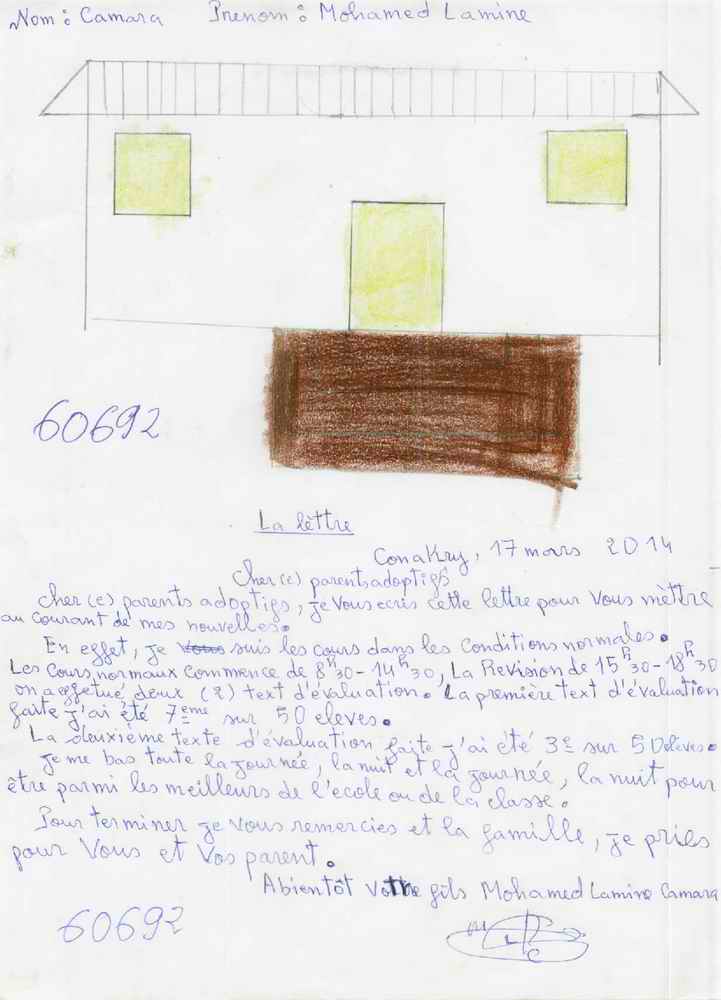 Nom : Camara Prenom : Mohamed Lamine
60692
La lèttre
Conakry, 17 mars 2014
Cher(e) parents adoptifs
Cher(e) parents adoptifs, je vous ecris cette lettre pour vous mèttre
au courant de mes nouvelles.
En effet, je vous suis les cours dans les conditions normales.
Les cours normaux commence de 8h30 - 14h30, La Revision de 15h30 - 18h30
on a effetué deux (2) text d'évaluation. La première text d'évaluation
faite j'ai été 7eme sur 50 eleves.
La deuxième texte d'évaluation faite j'ai été 3e sur 50 eleves.
je me bas toute la journée, la nuit et la journée, la nuit pour
être parmi les meilleurs de l'ecole ou de la classe.
Pour terminer je vous remercies et la famille, je pries
pour Vous et Vos parent.
Abientôt Vottre fils Mohamed Lamine Camara
60692